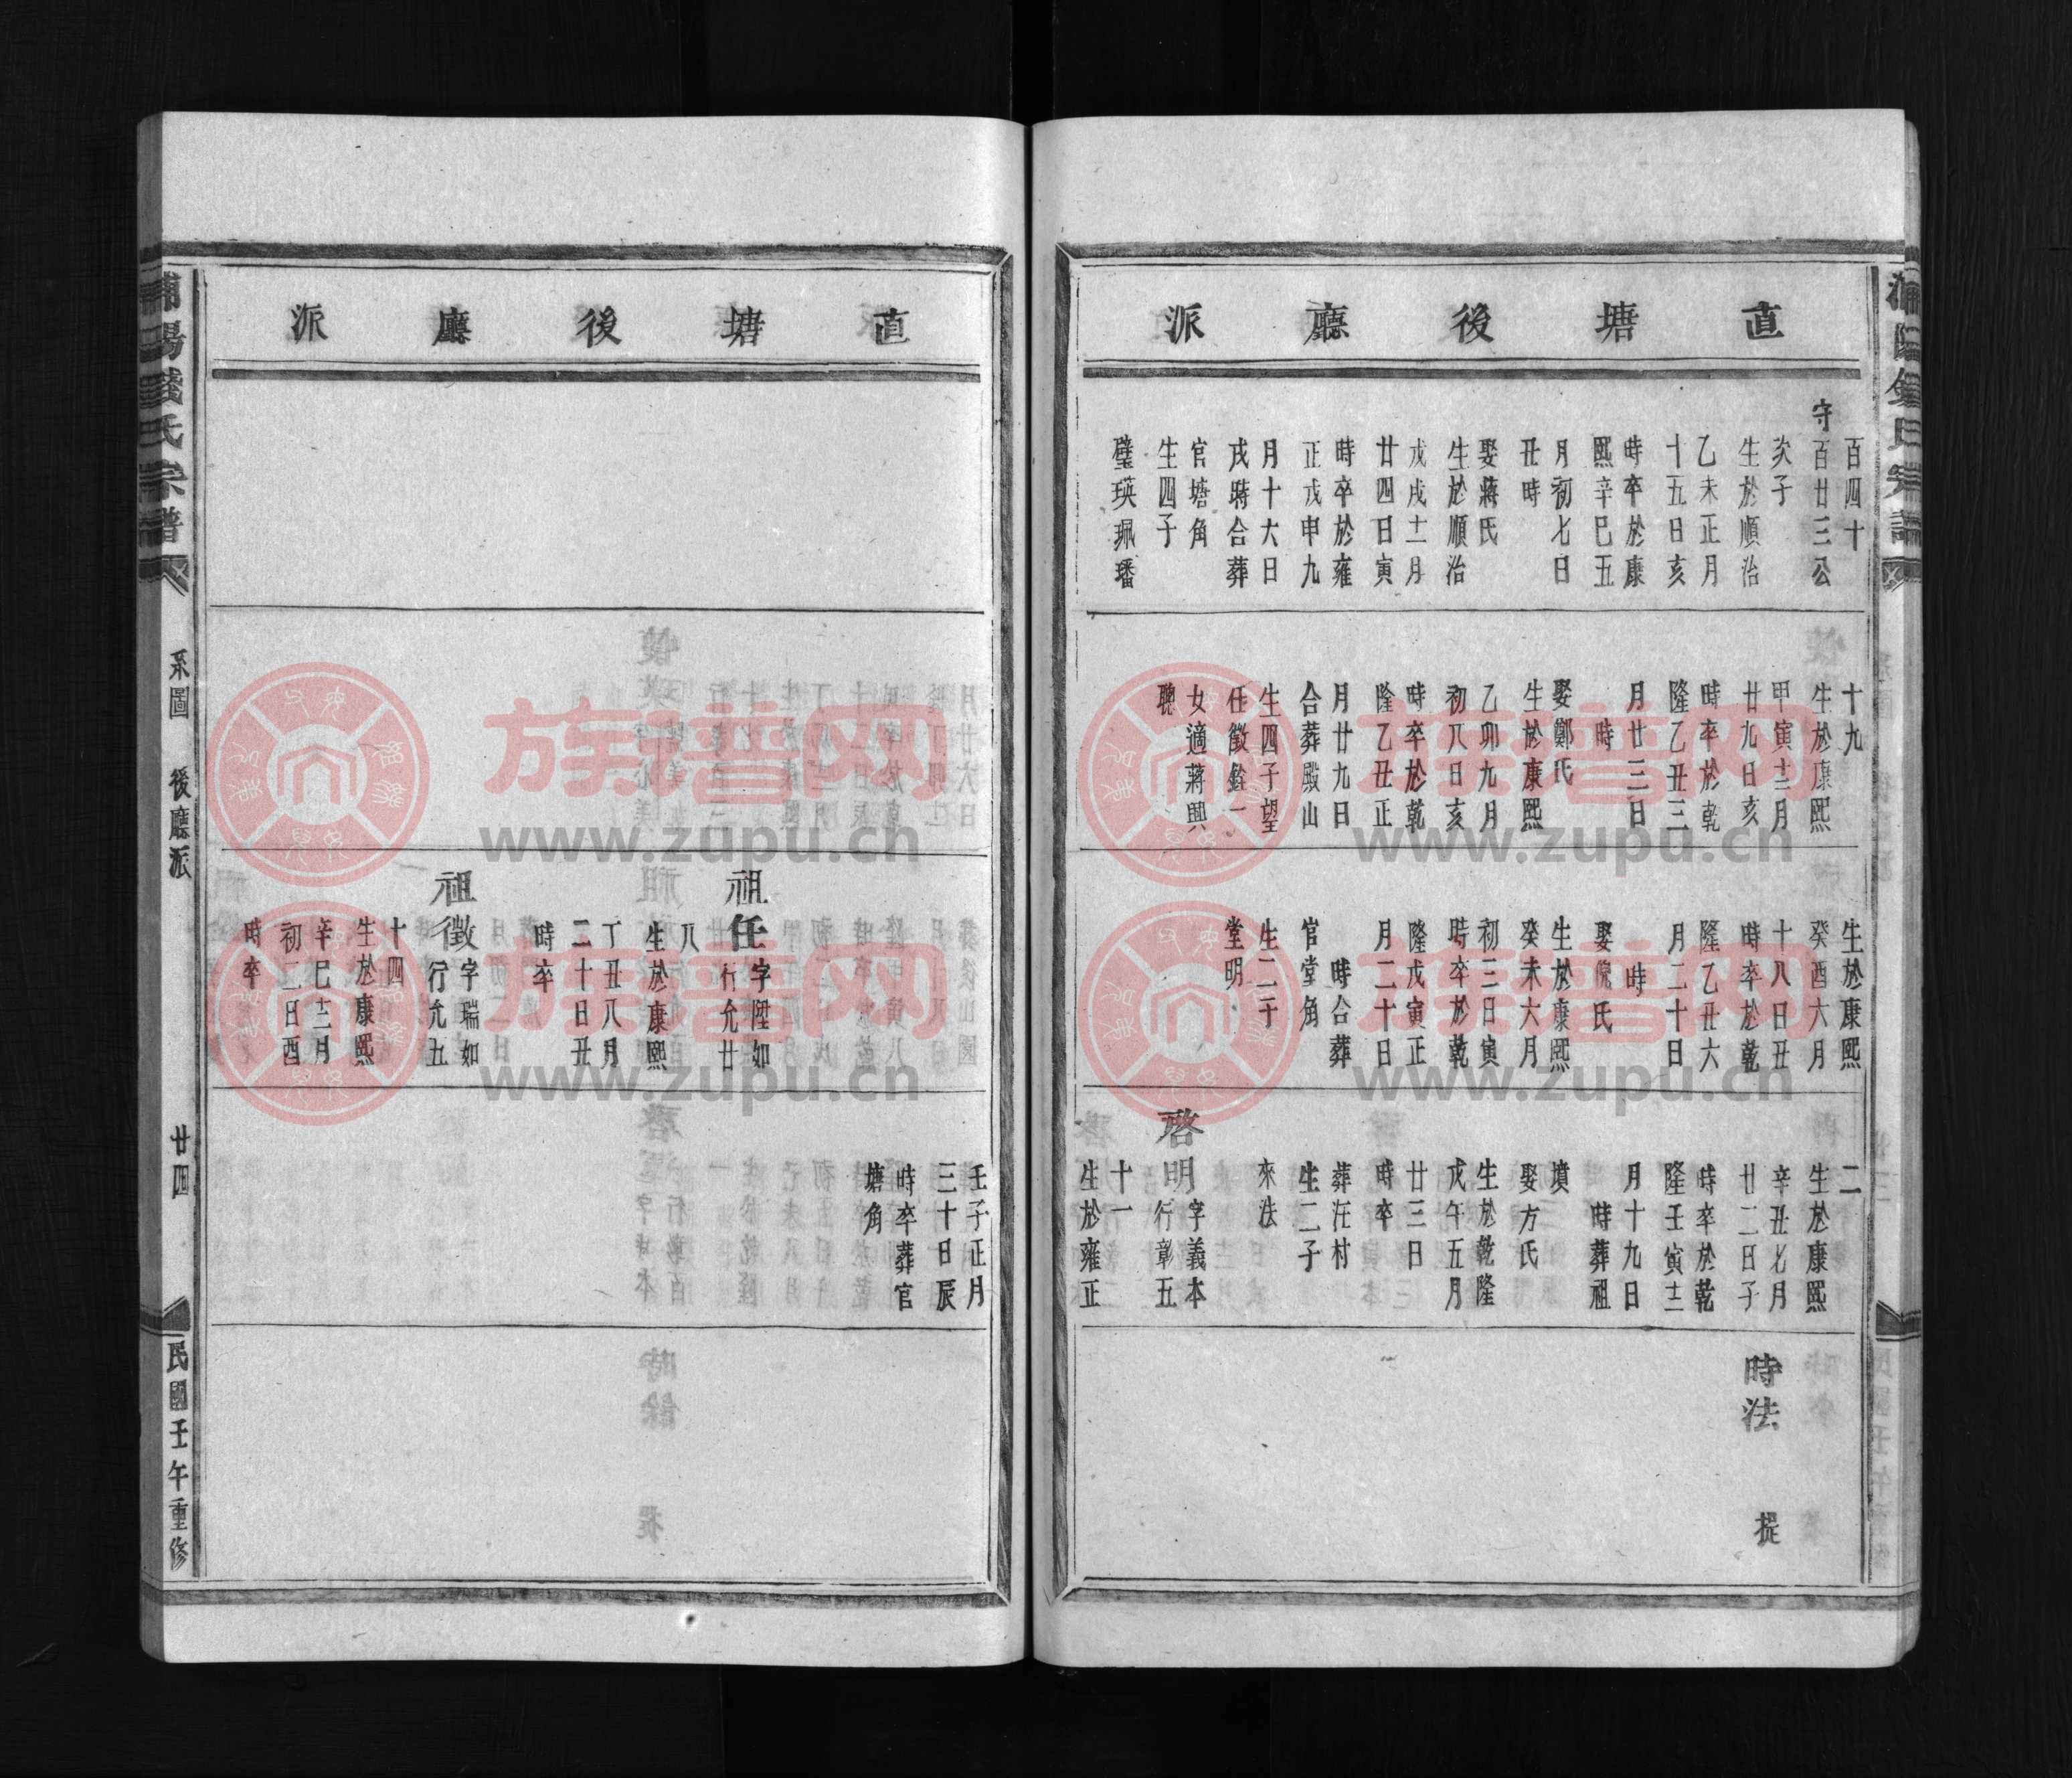 直塘後廳派
百四十
守百廿三公
次子
生於順治
乙未正月
十五日亥
時卒於康
熙辛巳五
月初七日
丑時
娶蔣氏
生於順治
戊戌十一月
廿四日寅
時卒於雍
正戊申九
月十六日
戌時合葬
官塘角
生四子
璧瑛珮璠
十九
生於康熙
甲寅十二月
廿九日亥
時卒於乾
隆乙丑三
月廿三日
時
娶鄭氏
生於康熙
乙卯九月
初八日亥
時卒於乾
隆乙丑正
月廿九日
合葬殿山
生四子望
任徵銓一
女適蔣興
聰
生於康熙
癸酉六月
十八日丑
時卒於乾
隆乙丑六
月二十日
時
娶倪氏
生於康熙
癸未六月
初三日寅
時卒於乾
隆戊寅正
月二十日
時合葬
官堂角
生二子
堂明
二
生於康熙
辛丑七月
廿二日子
時卒於乾
隆壬寅十二
月十九日
時葬祖
墳
娶方氏
生於乾隆
戊午五月
廿三日
時卒
葬汪村
生二子
來法
啓明字義本
行彰五
十一
生於雍正
時法
提
直塘後廳派
祖任字陞如
行允廿
八
生於康熙
丁丑八月
二十日丑
時卒
祖徵字瑞如
行允五
十四
生於康熙
辛巳十二月
初二日酉
時卒
壬子正月
三十日辰
時卒葬官
塘角
浦陽錢氏宗譜
系圖
後廳派
廿四
民國壬午重修
族谱网
www.zupu.cn
族谱网
www.zupu.cn
族谱网
www.zupu.cn
族谱网
www.zupu.cn